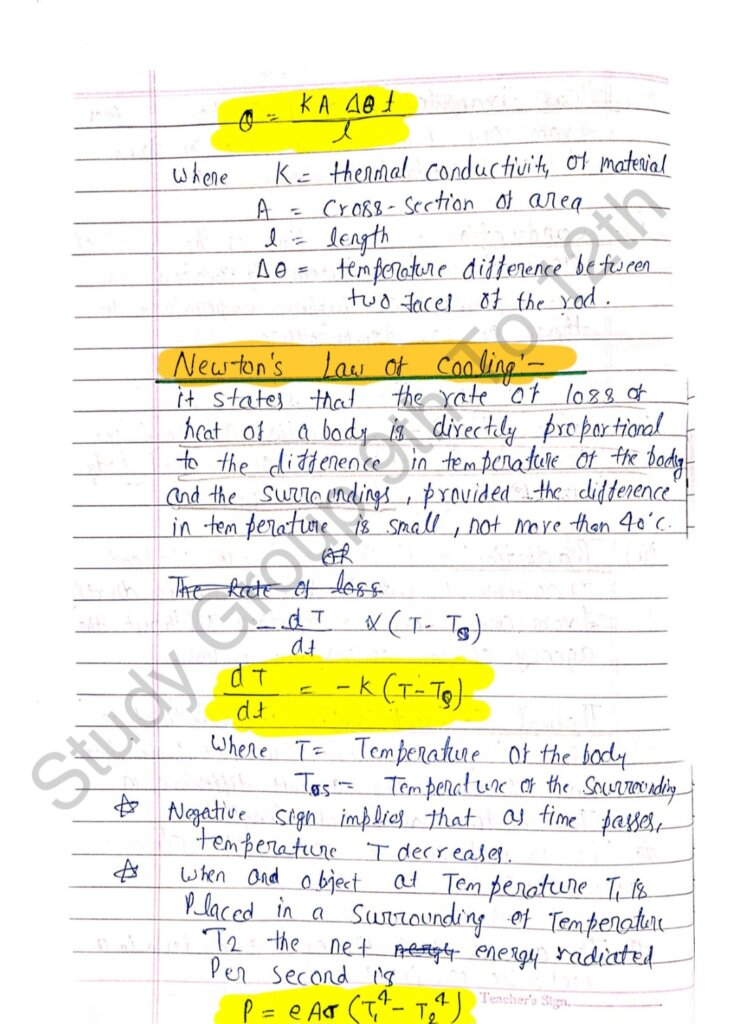 Q = KA Δθ t / l
where K = thermal conductivity of material
A = Cross-section of area
l = length
Δθ = temperature difference between
two faces of the rod.
Newton's Law of Cooling:-
it states that the rate of loss of
heat of a body is directly proportional
to the difference in temperature of the body
and the surroundings, provided the difference
in temperature is small, not more than 40°C.
OR
The Rate of loss
- dT/dt ∝ (T - Ts)
dT/dt = -K (T-Ts)
where T = Temperature of the body
Ts = Temperature of the Sourrounding
☆ Negative sign implies that as time passes,
temperature T decreases.
☆ When and object at Temperature T₁ is
Placed in a Surrounding of Temperature
T2 the net energy radiated
Per second is
P = eAσ (T₁⁴ - T₂⁴)
Teacher's Sign.
Study Group 9th To 12th